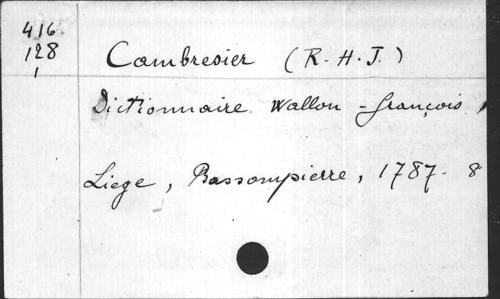 416
128
1
Cambresier (R. H. J.)
Dictionnaire Wallon - françois,
Liege, Bassompierre, 1787. 8